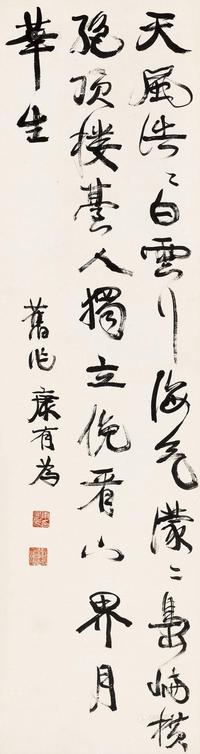 天風浩〻白雲行海气濛〻島嶼橫
絕頂樓臺人獨立俛山界月
華生
舊作 康有為